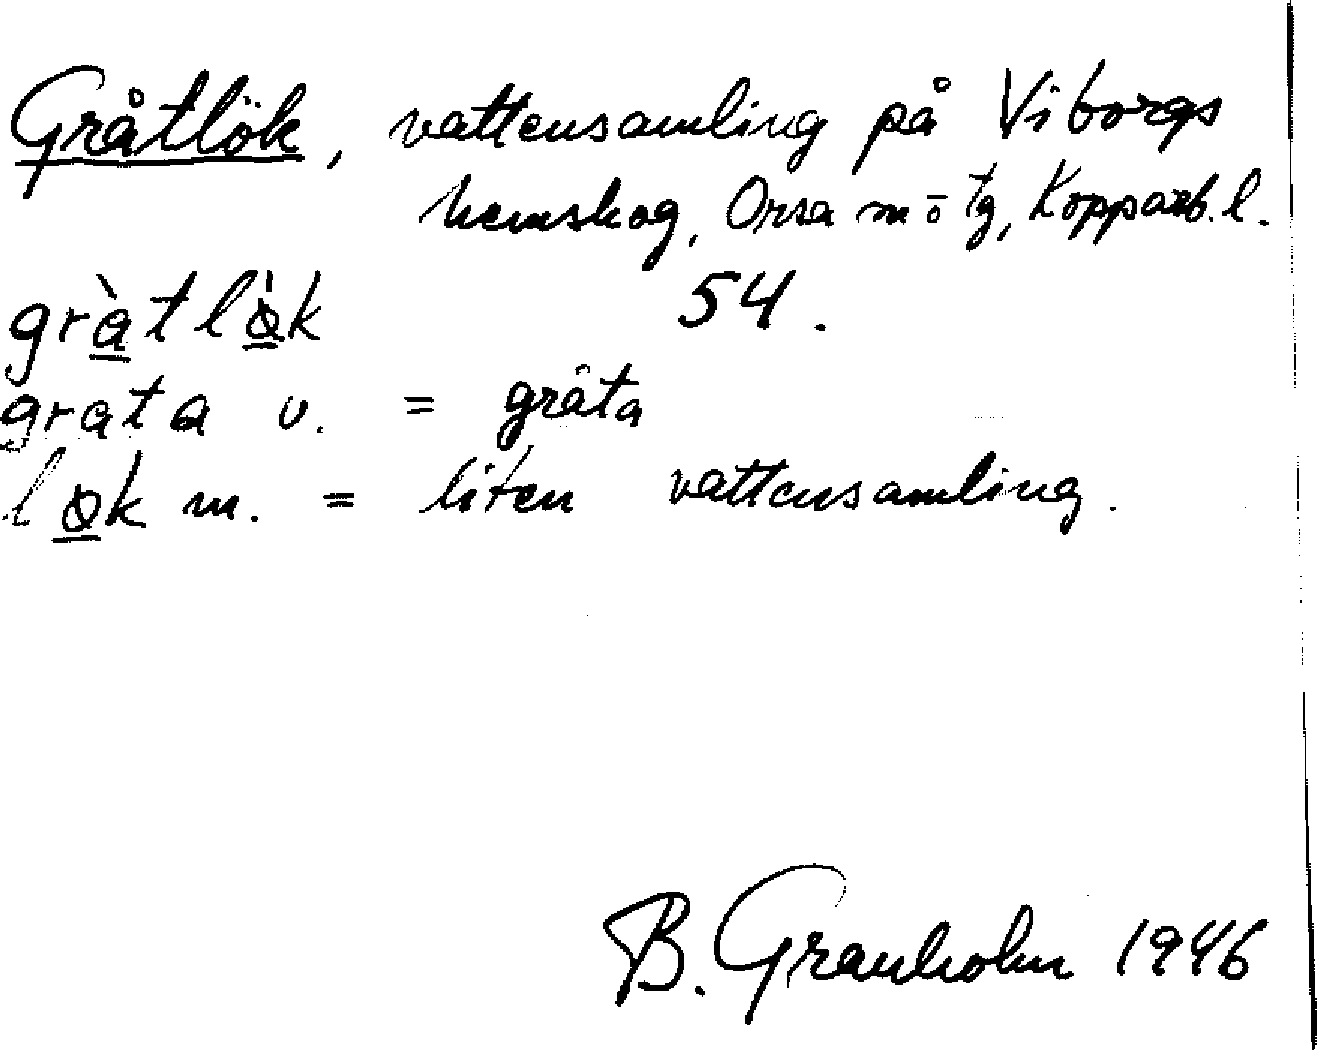 Gråtlök, vattensamling på Viborgs
hemskog, Orsa m o tg, Kopparb. l.
gràtlὰk 54.
grata v. = gråta
løk m. = liten vattensamling.
B. Granholm 1946